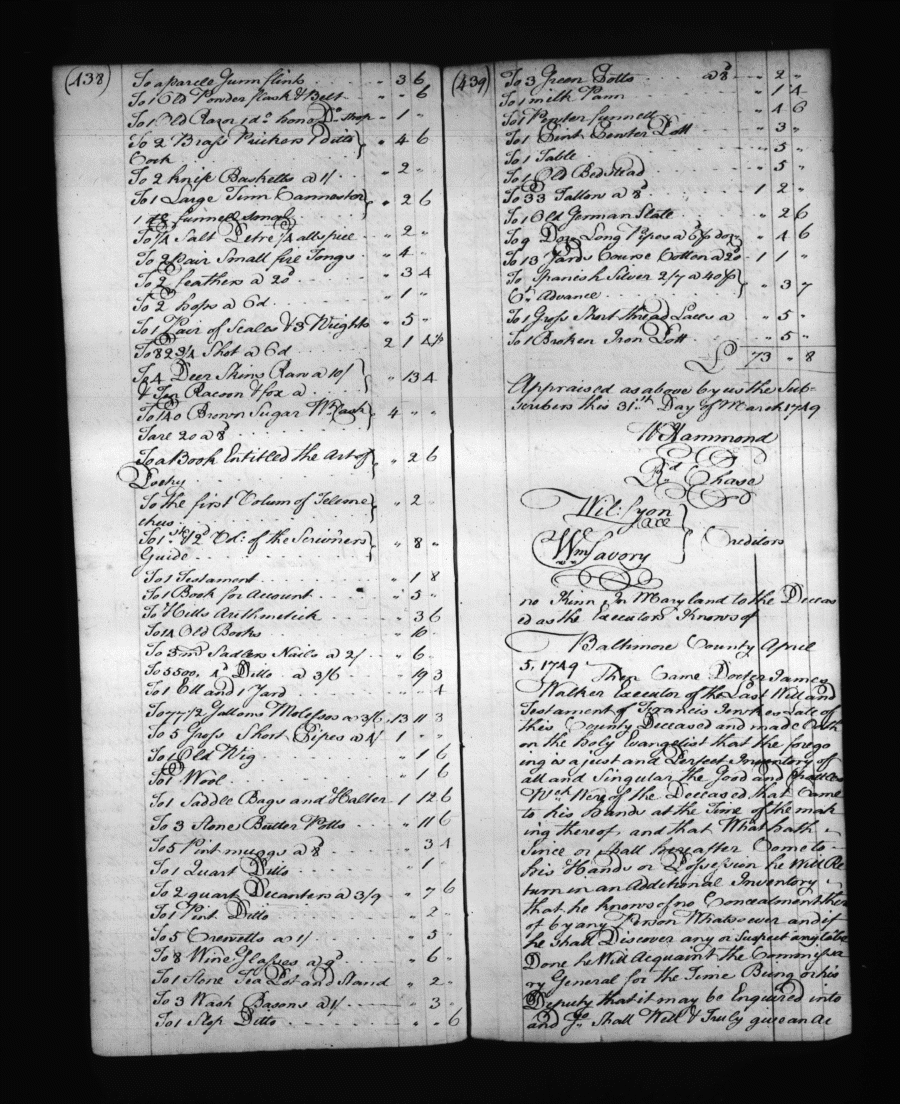 (438)
To a parcle Gunn flints . . . " 3 6
To 1 Old Powder flask & Belt . . " " 6
To 1 Old Razor 1 do hone Do Strop " 1 "
To 2 Brass Prickers 1 Ditto } " 4 6
Cock . . .
To 2 knife Basketts a 1/ . . . " 2 "
To 1 Large Tinn Cannester } " 2 6
funnell
To 1/4 Salt Petre 1/4 allspice . . " 2 "
To 2 pair Small fire Tongs . . " 4 "
To 2 feathers a 20d . . . " 3 4
To 2 hops a 6d . . . " 1 "
To 1 Pair of Scales & 3 Weights " 5 "
To 82 3/4 Shot a 6d . . . 2 1 4 1/2
To 4 Deer Skins Raw a 10/ } " 13 4
& Ten Racoon & fox a . .
To 140 Brown Sugar Wth Cask } 4 " "
Tare 20 a 8d . . .
To a Book Entitled the Art of } " 2 6
Poetry . . .
To the first Volum of Teleme } " 2 "
chus . . .
To 1st & 2d Vol: of the Scriviners } " 8 "
Guide . . .
To 1 Testament . . . " 1 8
To 1 Book for Account . . . " 5 "
To Hills Arithmetick . . . " 3 6
To 14 Old Books . . . " 10 "
To 3m Sadlers Nails a 2/ . . " 6 "
To 5500. 4d Ditto a 3/6 . . " 19 3
To 1 Ell and 1 Yard . . . " " 4
To 77 1/2 Gallons Molesses a 3/6 . 13 11 3
To 5 Gross Short Pipes a 4/ 1 " "
To 1 Old Wig . . . " 1 6
To 1 Wool . . . " 1 6
To 1 Saddle Bags and Halter . 1 12 6
To 3 Stone Butter Potts . . " 11 6
To 5 Pint muggs a 8d . . " 3 4
To 1 Quart Ditto . . . " 1 "
To 2 quart Decanters a 3/9 . " 7 6
To 1 Pint Ditto . . . " 2 "
To 5 Crewetts a 1/ . . . " 5 "
To 8 Wine Glasses a 9d . . " 6 "
To 1 Stone Tea Pot and Stand " 2 "
To 3 Wash Basons a 1/ . . " 3 "
To 1 Slop Ditto . . . " " 6
(439)
To 3 Green Potts . . a 8d " 2 "
To 1 milk Pann . . . " 1 4
To 1 Pewter funnell . . " 4 6
To 1 Pint Pewter Pott . . " 3 "
To 1 Table . . . " 5 "
To 1 Old Bedstead . . . " 5 "
To 33 Tallow a 8d . . 1 2 "
To 1 Old German Slate . . " 2 6
To 9 Doz Long Pipes a 6d p doz " 4 6
To 13 Yards Course Cotton a 20d . 1 1 "
To Spanish Silver 2/7 a 40 p } " 3 7
Ct Advance . . .
To 1 Gross Short thread Laces a " 5 "
To 1 Broken Iron Pott . . " 5 "
£ 73 " 8
Appraised as above by us the Sub-
scribers this 31st Day of March 1749
W Hammond
Rd Chase
Wil: Lyon
Wm Savory } Creditors
no Kinn In Maryland to the Deceas
ed as the Executor Knows of
Baltimore County April
5, 1749 Then Came Docter James
Walker Executor of the Last Will and
Testament of Francis Late of
this County Deceased and made Oath
on the Holy Evangelist that the forego
ing is a just and Perfect Inventory of
all and Singular the Good and Chattles
Wch Were of the Deceased that Came
to his Hands at the Time of the mak
ing thereof, and that What hath
Since or Shall hereafter Come to
his Hands or Possession he Will Re
turn in an Additional Inventory
that he knows of no Concealment ther
of by any Person Whatsoever and if
he Shall Discover any or Suspect any to be
Done he Will Acquaint the Commissa
ry General for the Time Being or his
Deputy that it may be Enquired into
and Shall Well & Truly give an Ac